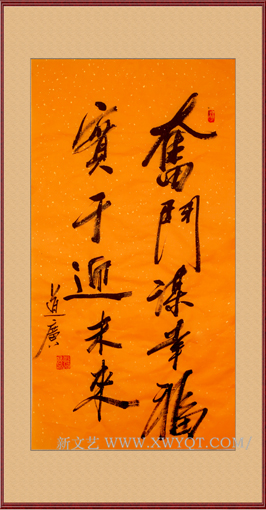 奮鬥謀幸福
實干迎未來
道廣
新文艺 WWW.XWYQT.COM/